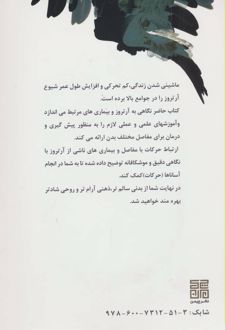 ماشینی شدن زندگی،کم تحرکی و افزایش طول عمر شیوع
آرتروز را در جوامع بالا برده است.
کتاب حاضر نگاهی به آرتروز و بیماری های مرتبط می اندازد
وآموزشهای علمی و عملی لازم را به منظور پیش گیری و
درمان برای مفاصل مختلف بدن ارائه می کند.
ارتباط حرکات با مفاصل و بیماری های ناشی از آرتروز با
نگاهی دقیق و موشکافانه توضیح داده شده تا به شما در انجام
آساناها (حرکات)کمک کند.
در نهایت شما از بدنی سالم تر،ذهنی آرام تر و روحی شادتر
بهره مند خواهید شد.
شابک: ۳-۵۱-۷۳۱۲-۶۰۰-۹۷۸